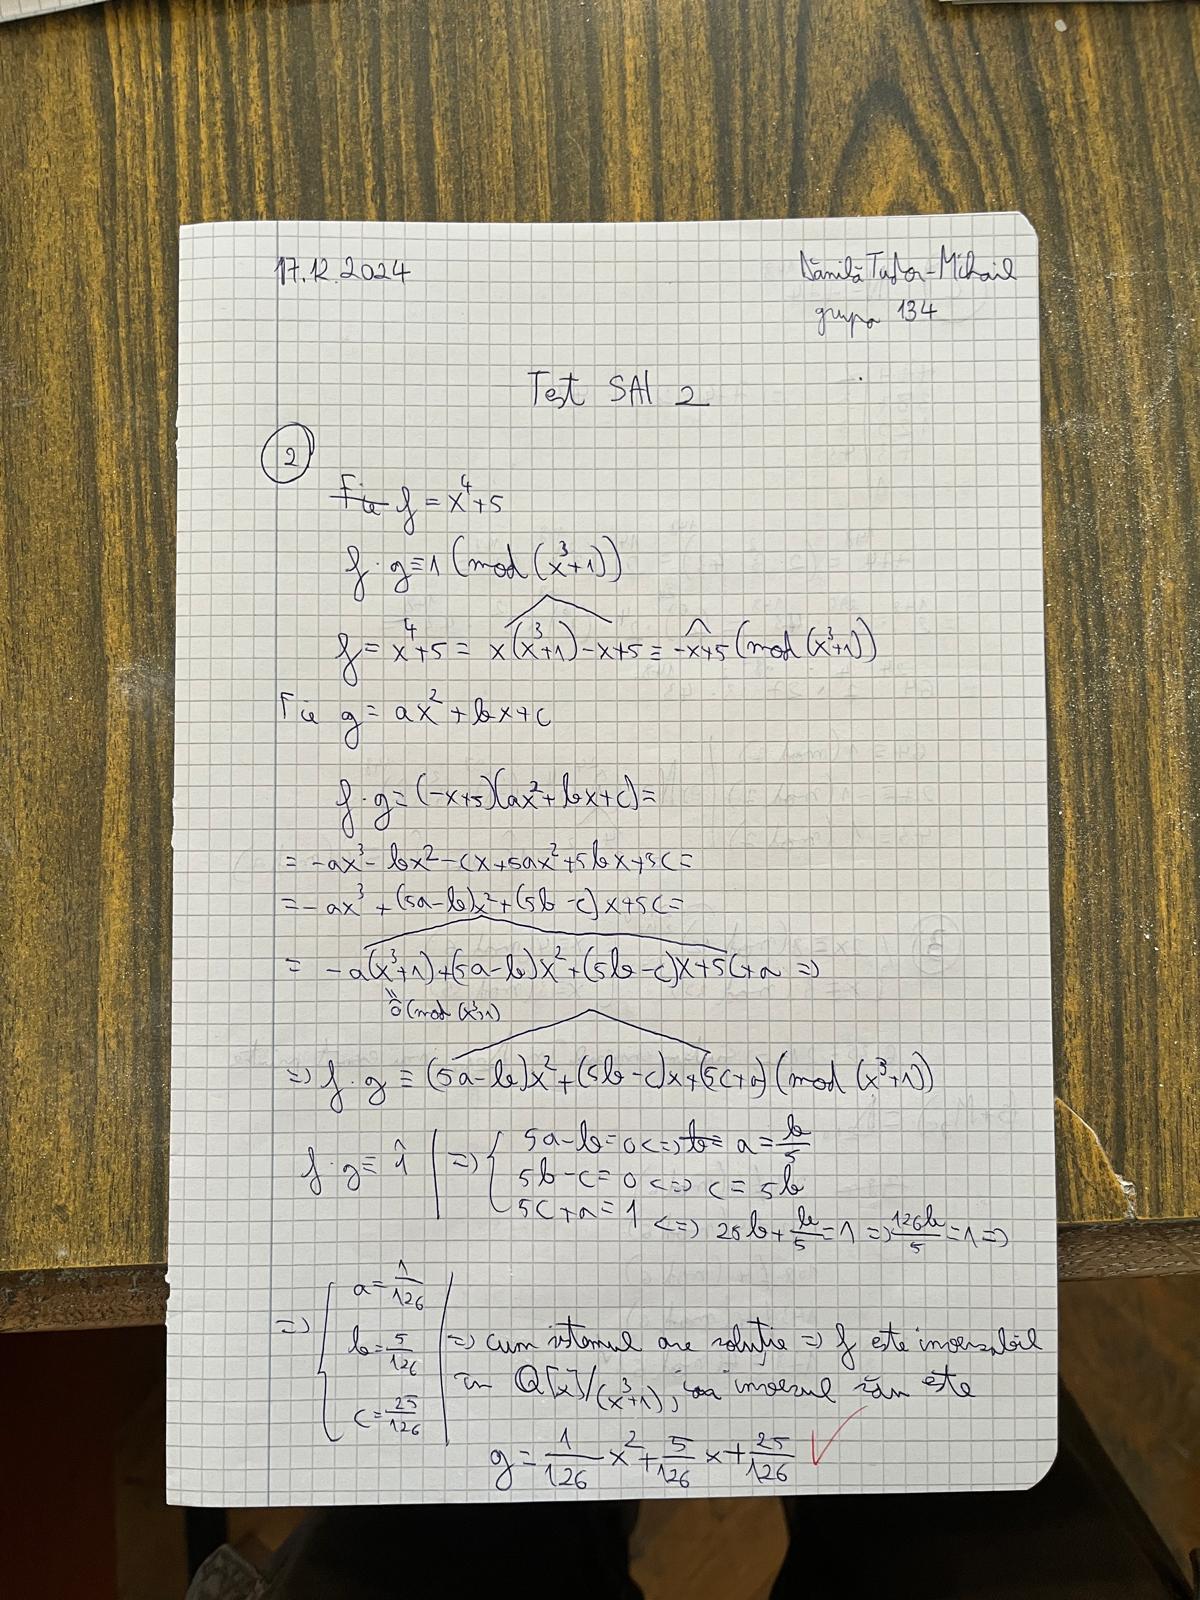 17.12.2024
Dănilă Tudor-Mihail
grupa 134
Test SAI 2
2
Fie f = x⁴+5
f·g≡1 (mod (x³+1))
f = x⁴+5 = x(x³+1)-x+5 ≡ -x+5 (mod (x³+1))
Fie g = ax²+bx+c
f·g = (-x+5)(ax²+bx+c)=
= -ax³-bx²-cx+5ax²+5bx+5c=
= -ax³+(5a-b)x²+(5b-c)x+5c=
= -a(x³+1)+(5a-b)x²+(5b-c)x+5c+a =>
0 (mod (x³+1)
=> f·g ≡ (5a-b)x²+(5b-c)x+(5c+a) (mod (x³+1))
f·g ≡ 1̂ | => { 5a-b=0 <=> b= a = b/5
5b-c=0 <=> c = 5b
5c+a=1 <=> 25b+b/5=1 => 126b/5=1 =>
=> { a = 1/126
b = 5/126 | => cum sistemul are soluție => f este inversabil
c = 25/126 în Q[x]/(x³+1), iar inversul său este
g = 1/126 x² + 5/126 x + 25/126